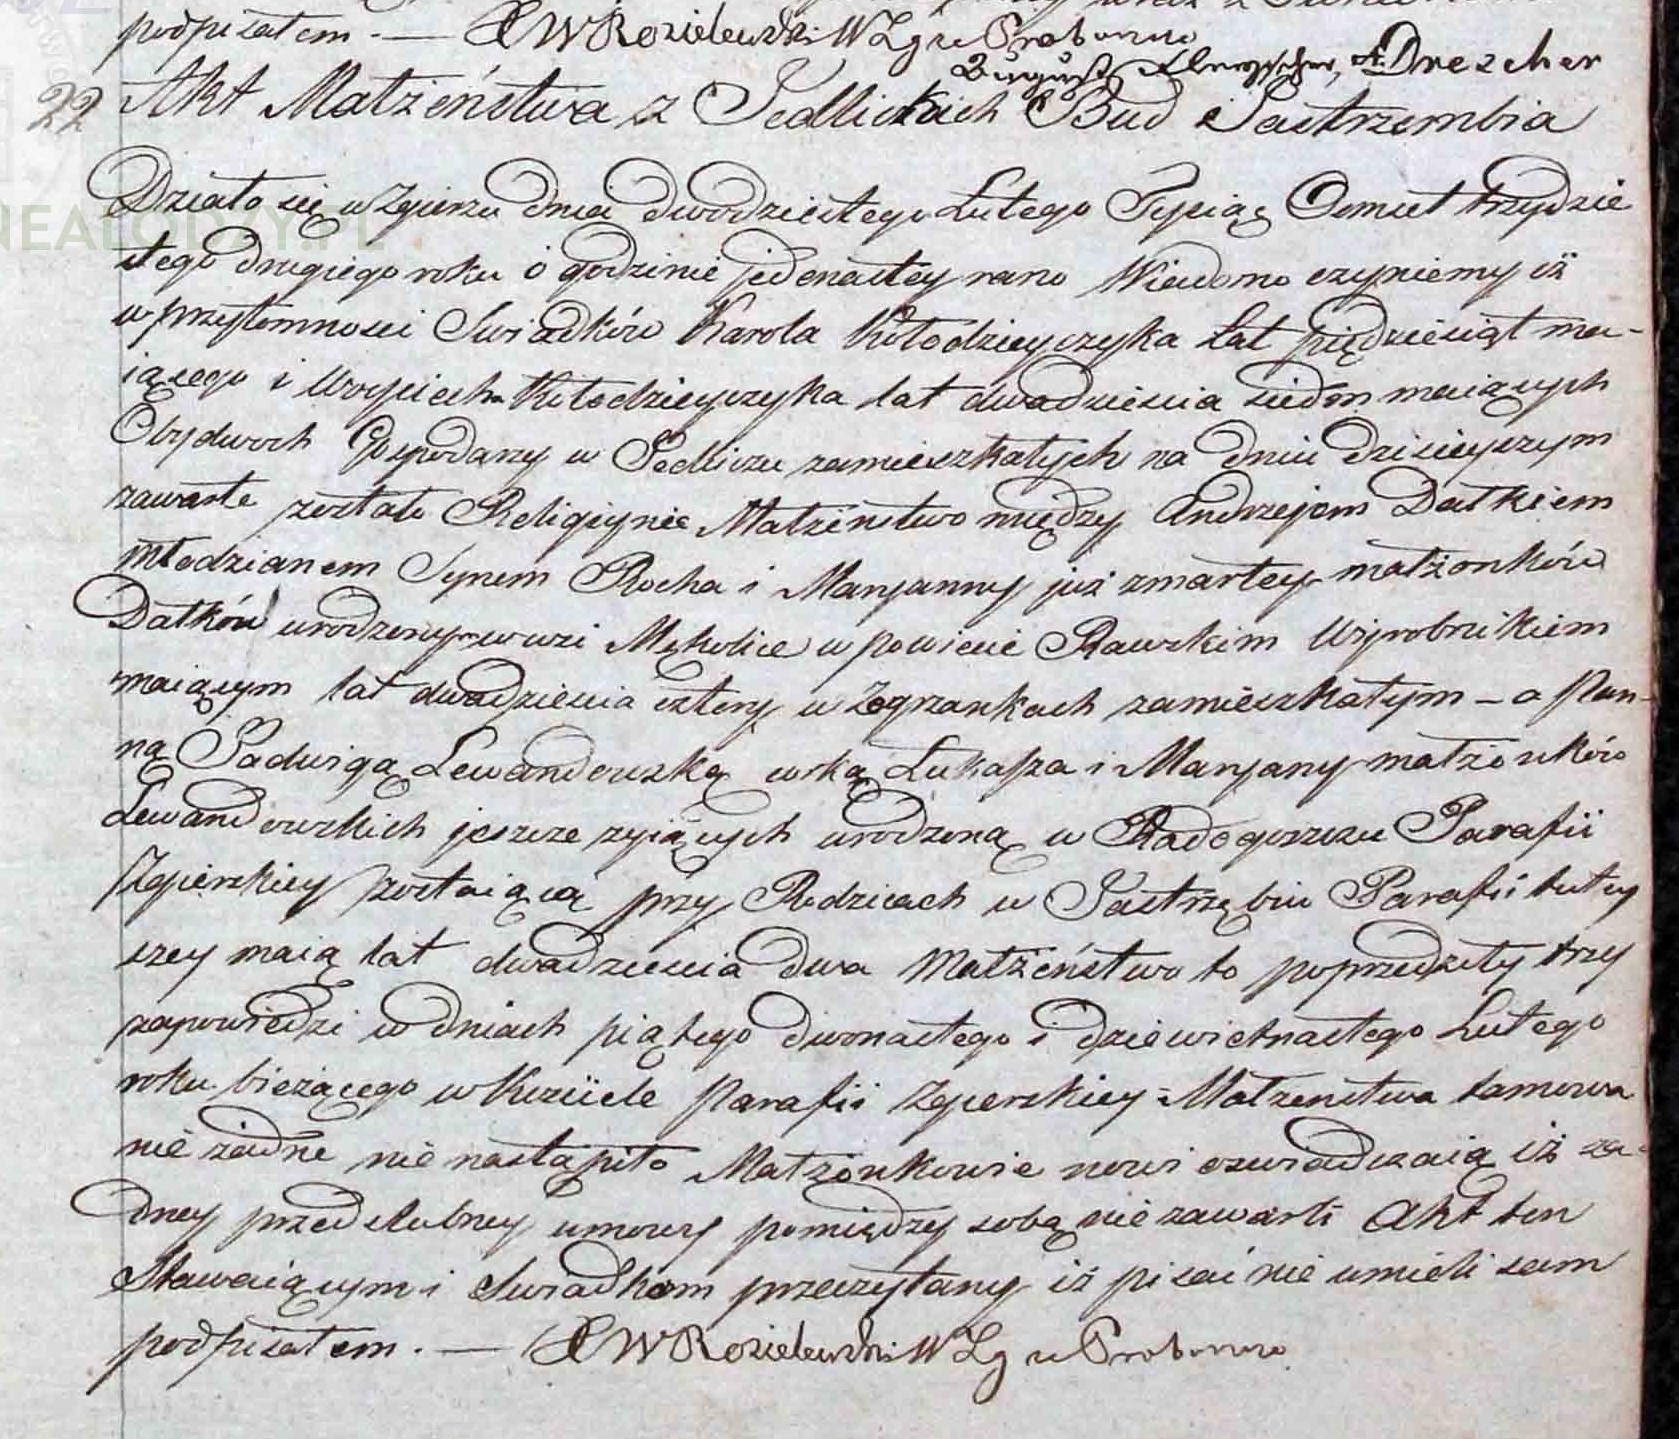 podpisałem. — X W Rosielewski W Zg u Probosz
August, A. Drescher
22 Akt Małżeństwa z Jedlickich Bud i Jastrzembia
Działo się w Zgierzu dnia dwódziestego Lutego Tysiąc Osmset trzydzie
stego drugiego roku o godzinie jedenastey rano Wiadomo czyniemy iż
w przytomnosci Swiadków Karola Kołodzieyczyka Lat pięćdziesiąt ma-
iącego i Woyciecha Kołodzieyczyka lat dwadziescia siedm maiących
Obydwoch Gospodarzy w Jedliczu zamieszkałych na dniu dzisieyszym
zawarte zostało Religiynie Małżeństwo między Andrzejem Datkiem
młodzianem Synem Rocha i Maryanny już zmarłey małżonków
Datków urodzonym w wsi Mąkolice w powiecie Rawskim Wyrobnikiem
maiącym lat dwadziescia cztery w Zegrzankach zamieszkałym – a Pan-
ną Jadwigą Lewandowską córką Łukasza i Maryany małżonków
Lewandowskich jeszcze zyiących urodzoną w Radogoszczu Parafii
Zgierskiey zostaiącą przy Rodzicach w Jastrzębiu Parafii tutey
szey maią lat dwadziescia dwa Małżeństwo to poprzedziły trzy
zapowiedzi w dniach piątego dwunastego i dziewietnastego Lutego
roku bieżącego w Kościele Parafii Zgierskiey – Małzenstwa tamowa
nie żadne nie nastąpiło Małżonkowie nowi oswiadczaią iż ża-
dney przedslubney umowy pomiędzy sobą nie zawarli Akt ten
Stawaiącym i Swiadkom przeczytany iż pisać nie umieli sam
podpisałem. — X W Rosielewski W Zg u Probosz